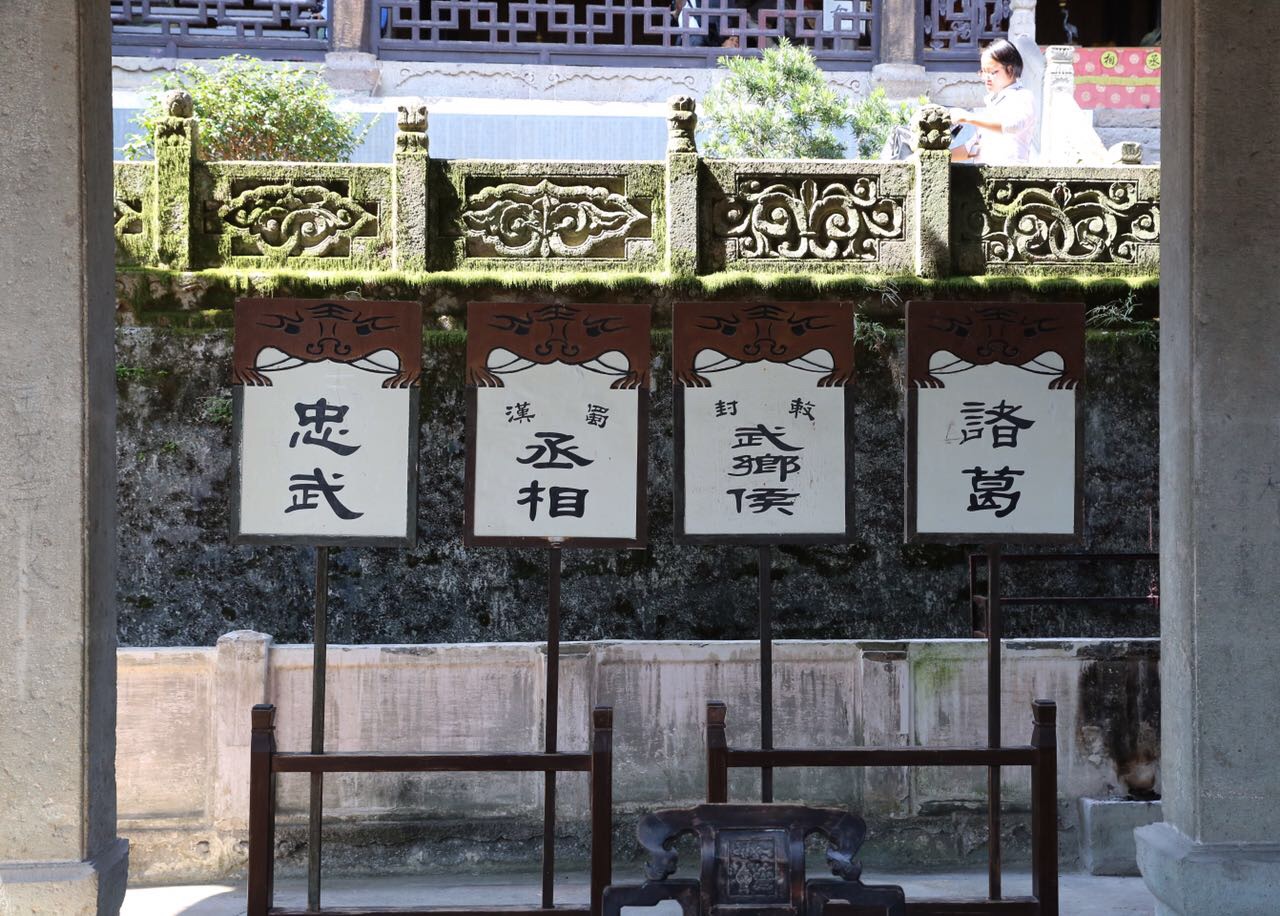 諸葛
敕封
武鄉侯
蜀漢
丞相
忠武
丞相